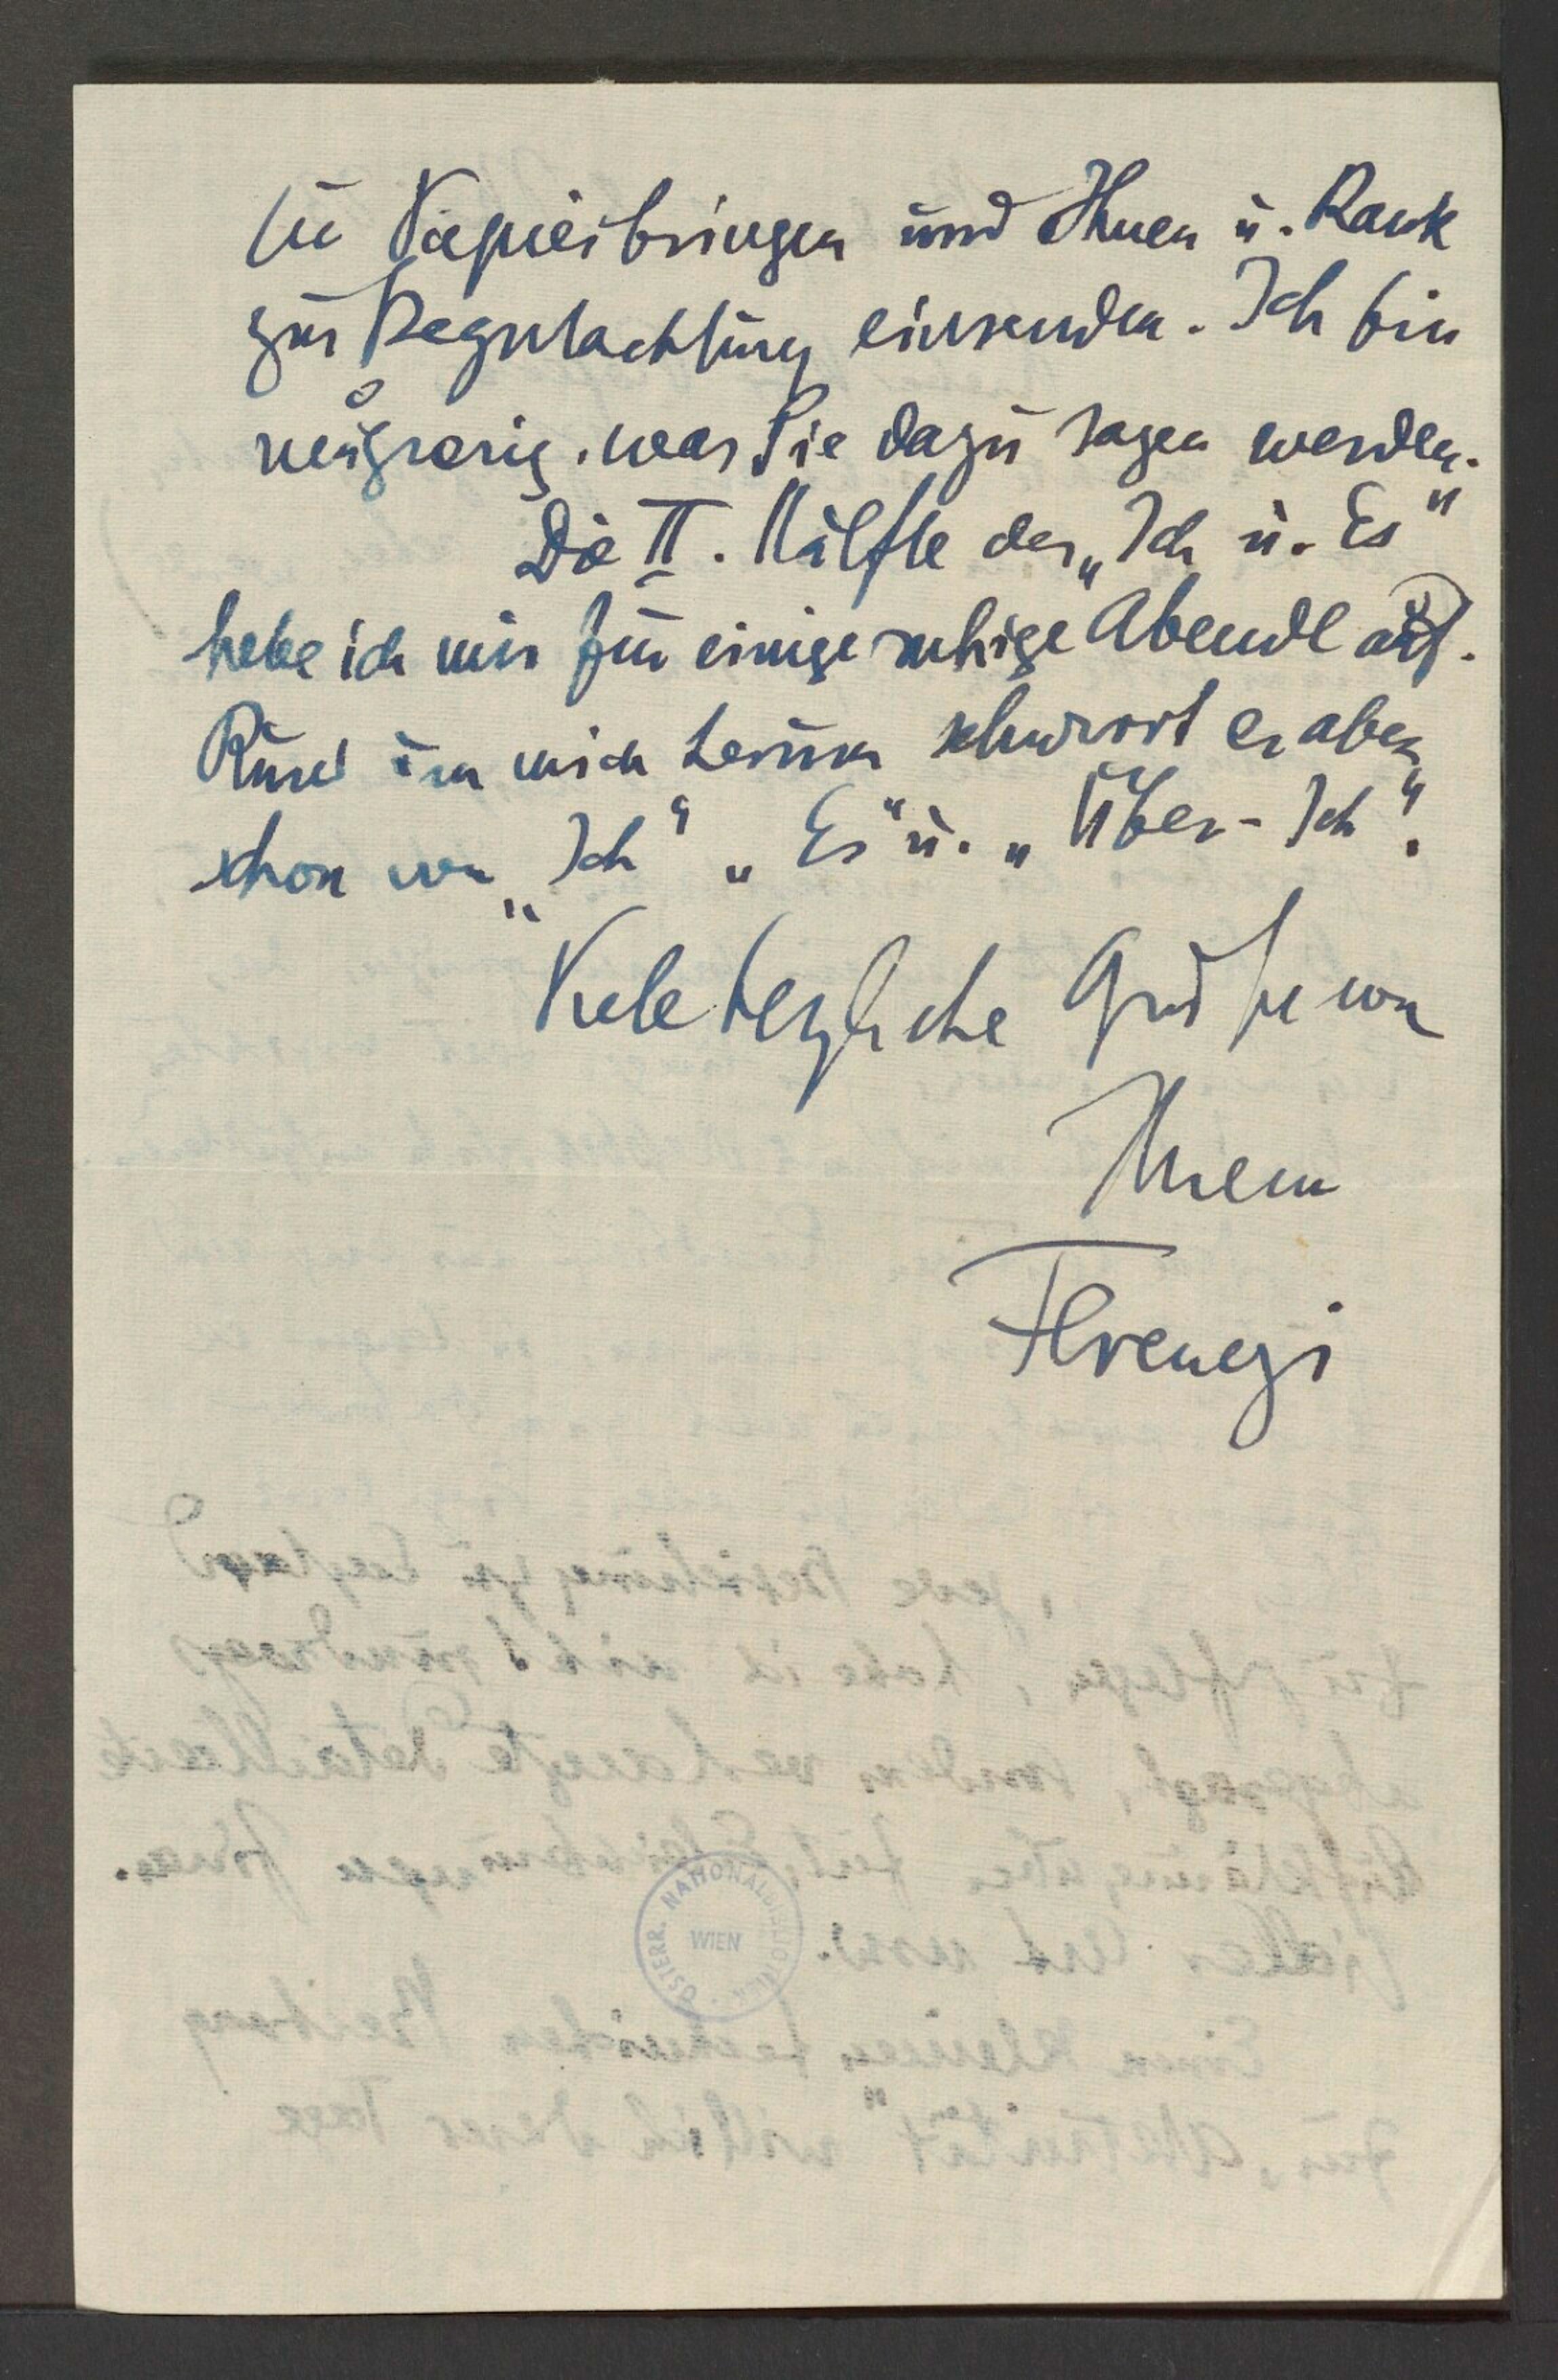 zu Papier bringen und Ihnen u. Rank
zur Begutachtung einsenden. Ich bin
neugierig, was Sie dazu sagen werden.
Die II. Hälfte des „Ich u. Es"
hebe ich mir für einige ruhige Abende auf.
Rund um mich herum schwirrt es aber
schon von „Ich" „Es" u. „Über-Ich".
Viele herzliche Grüße von
Ihrem
Ferenczi
ÖSTERR. NATIONALBIBLIOTHEK
WIEN